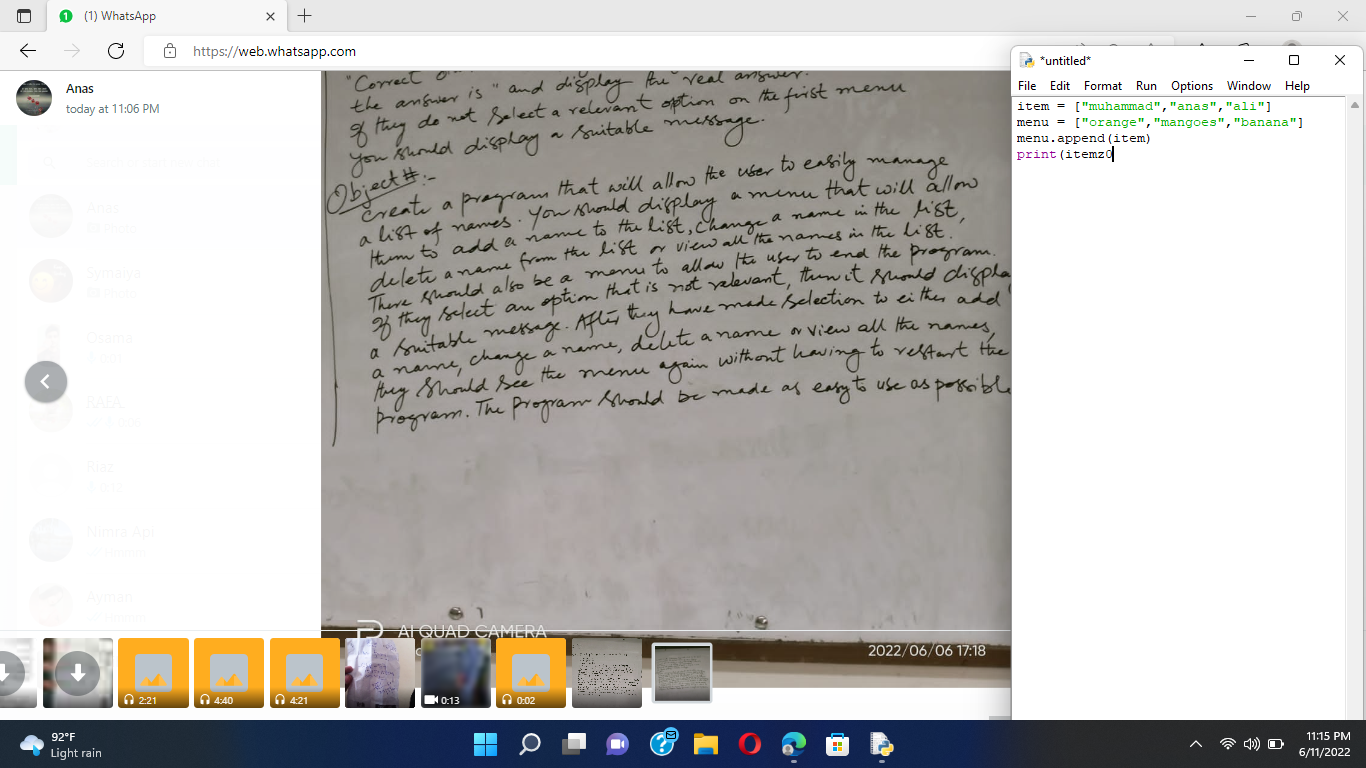 (1) WhatsApp
https://web.whatsapp.com
Anas
today at 11:06 PM
Anas
Photo
Symaiva
Photo
Osama
RAFA
Riaz
Nimra Api
Ayman
"Correct
the answer is" and display the real answer.
If they do not select a relevant option on the first menu
you should display a suitable message.
Object #:-
Create a program that will allow the user to easily manage
a list of names. You should display a menu that will allow
them to add a name to the list, change a name in the list,
delete a name from the list or view all the names in the list.
There should also be a menu to allow the user to end the program.
If they select an option that is not relevant, then it should displa
a suitable message. After they have made selection to either add
a name, change a name, delete a name or view all the names,
they should see the menu again without having to restart the
program. The program should be made as easy to use as possible
AI QUAD CAMERA
2022/06/06 17:18
2:21
4:40
4:21
0:13
0:02
*untitled*
File Edit Format Run Options Window Help
item = ["muhammad","anas","ali"]
menu = ["orange","mangoes","banana"]
menu.append(item)
print(itemz0
92°F
Light rain
11:15 PM
6/11/2022